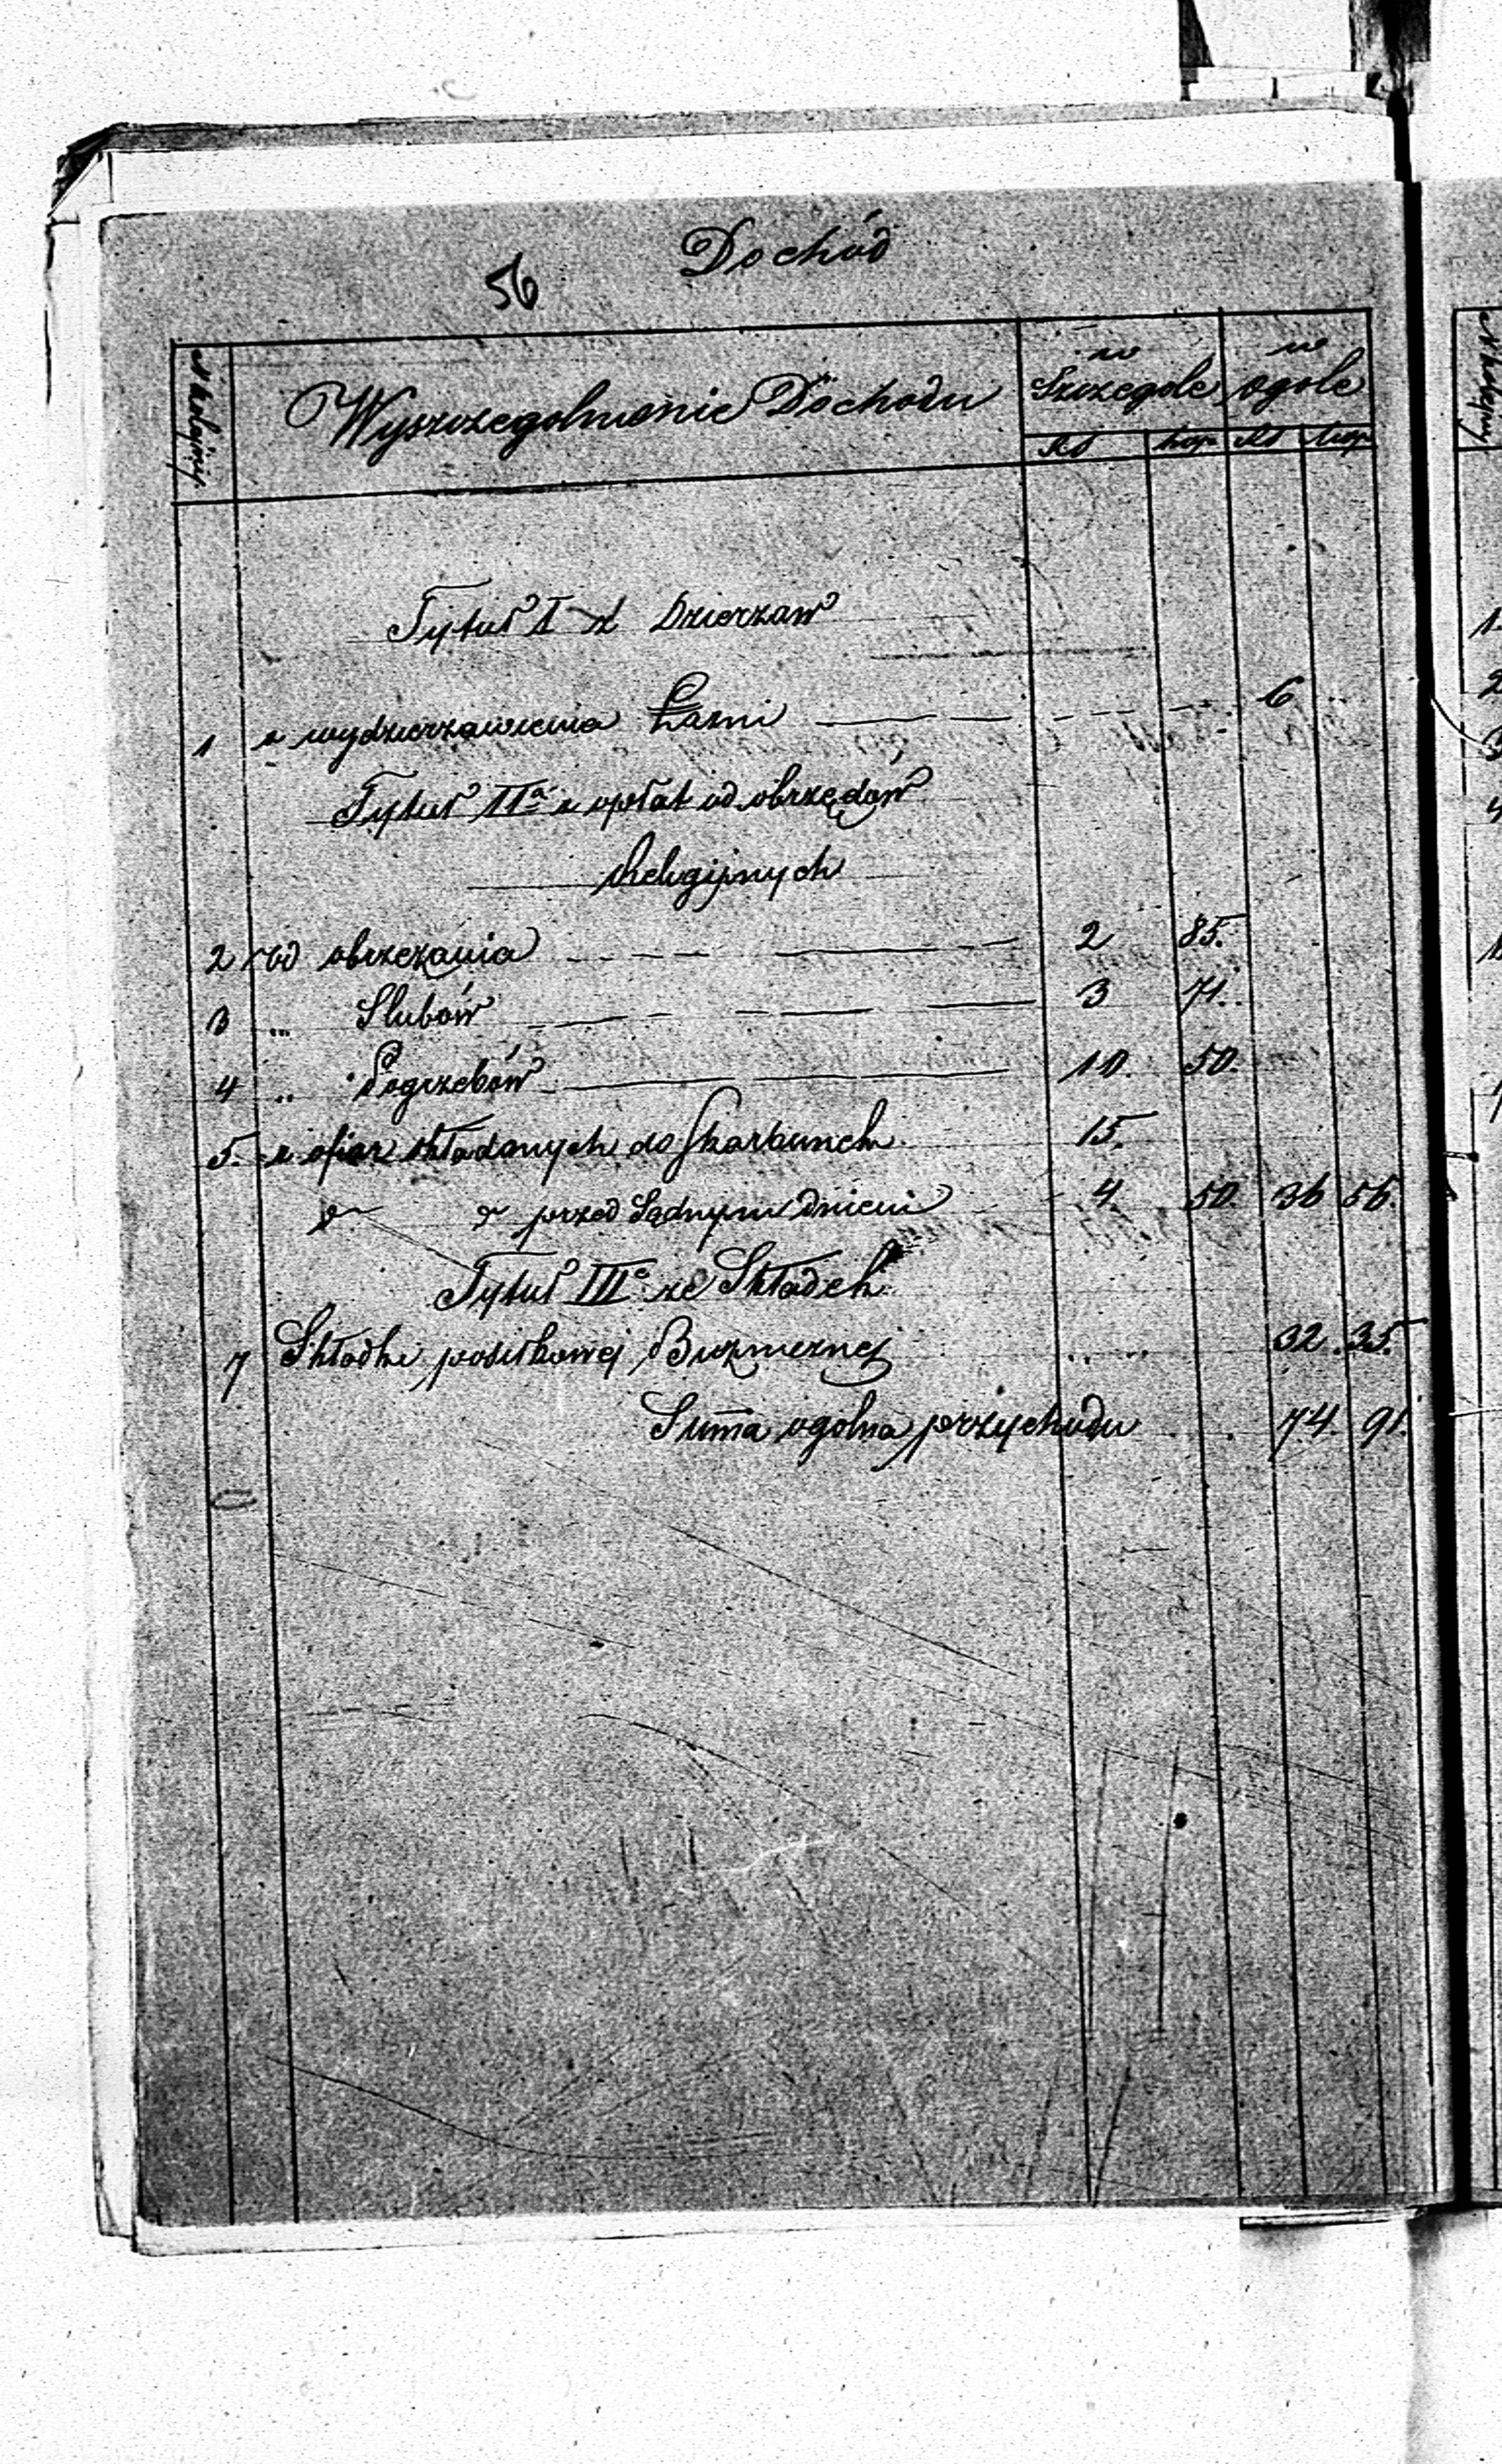 Dochód
56
N kolejny
Wyszczegolnienie Dochodu
w Szczegole
w ogole
Rs kop Rs kop
Tytuł I z Dzierzaw
1 z wydzierzawienia Łazni 6
Tytuł IIa z opłat od obrzędów
Religijnych
2 od obrzezania 2 85.
3 " Slubów 3 71.
4 " Pogrzebów 10. 50.
5. z ofiar składanych do Skarbonek 15.
przed Sądnym dniem 4. 50. 36 56.
Tytuł III ze Składek
7 Składki posiłkowej 32. 35.
Suma ogólna przychodu 74. 91.
N kolejny
1.
2
3
4